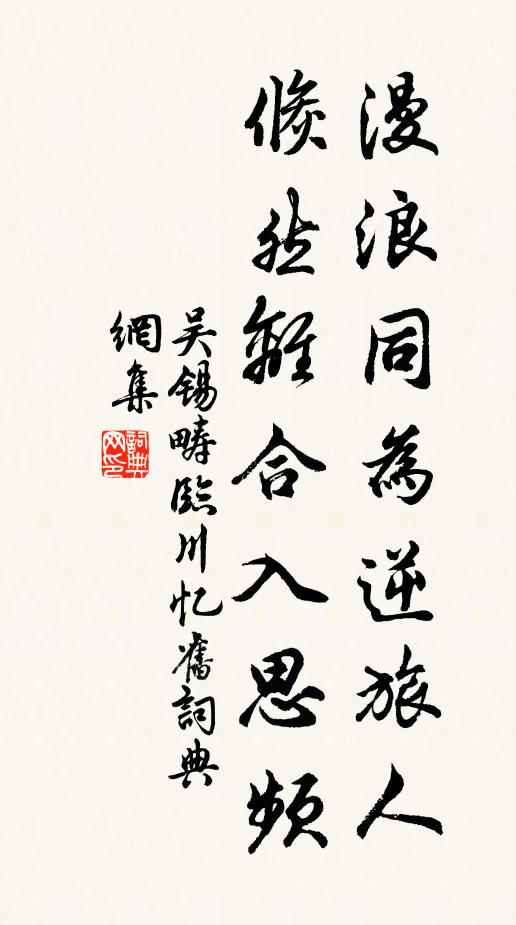 漫浪同為逆旅人
倐然離合入思頻
吳錫疇臨川忆舊詞典
網集
詞典網印